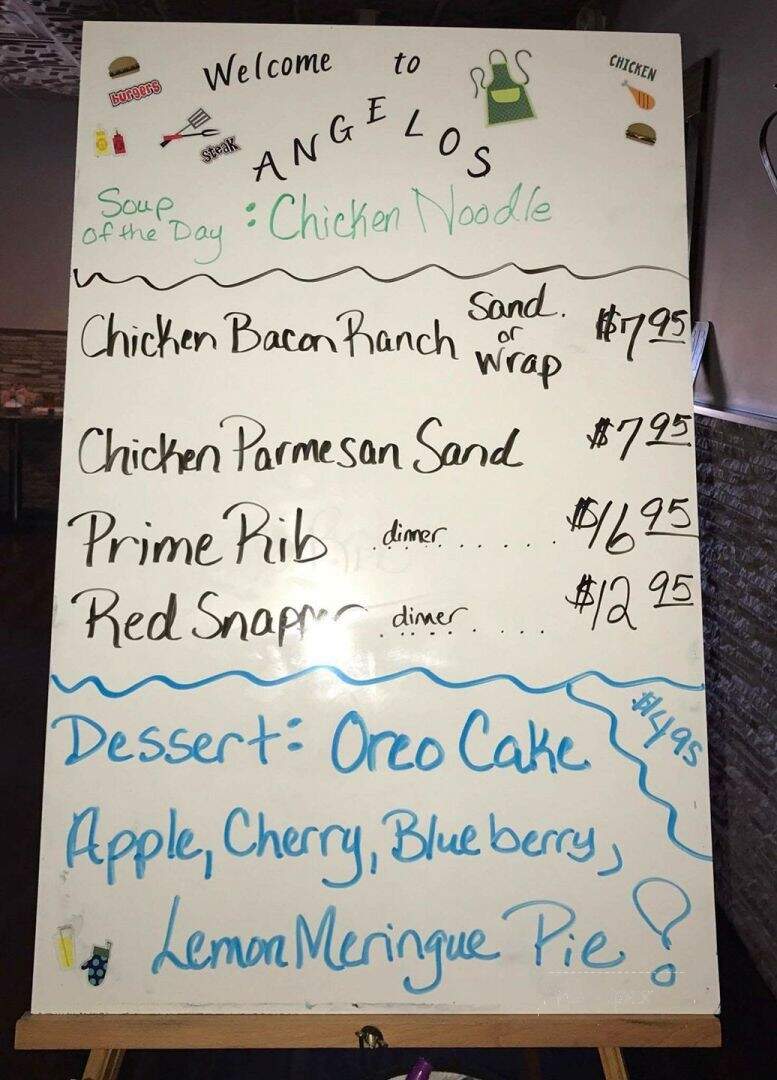 burgers
Welcome to
CHICKEN
steak
ANGELOS
Soup
of the Day : Chicken Noodle
Chicken Bacon Ranch Sand. or Wrap $7 95
Chicken Parmesan Sand $7 95
Prime Rib dinner $16 95
Red Snapper dinner $12 95
$4 95
Dessert: Oreo Cake
Apple, Cherry, Blueberry,
Lemon Meringue Pie!